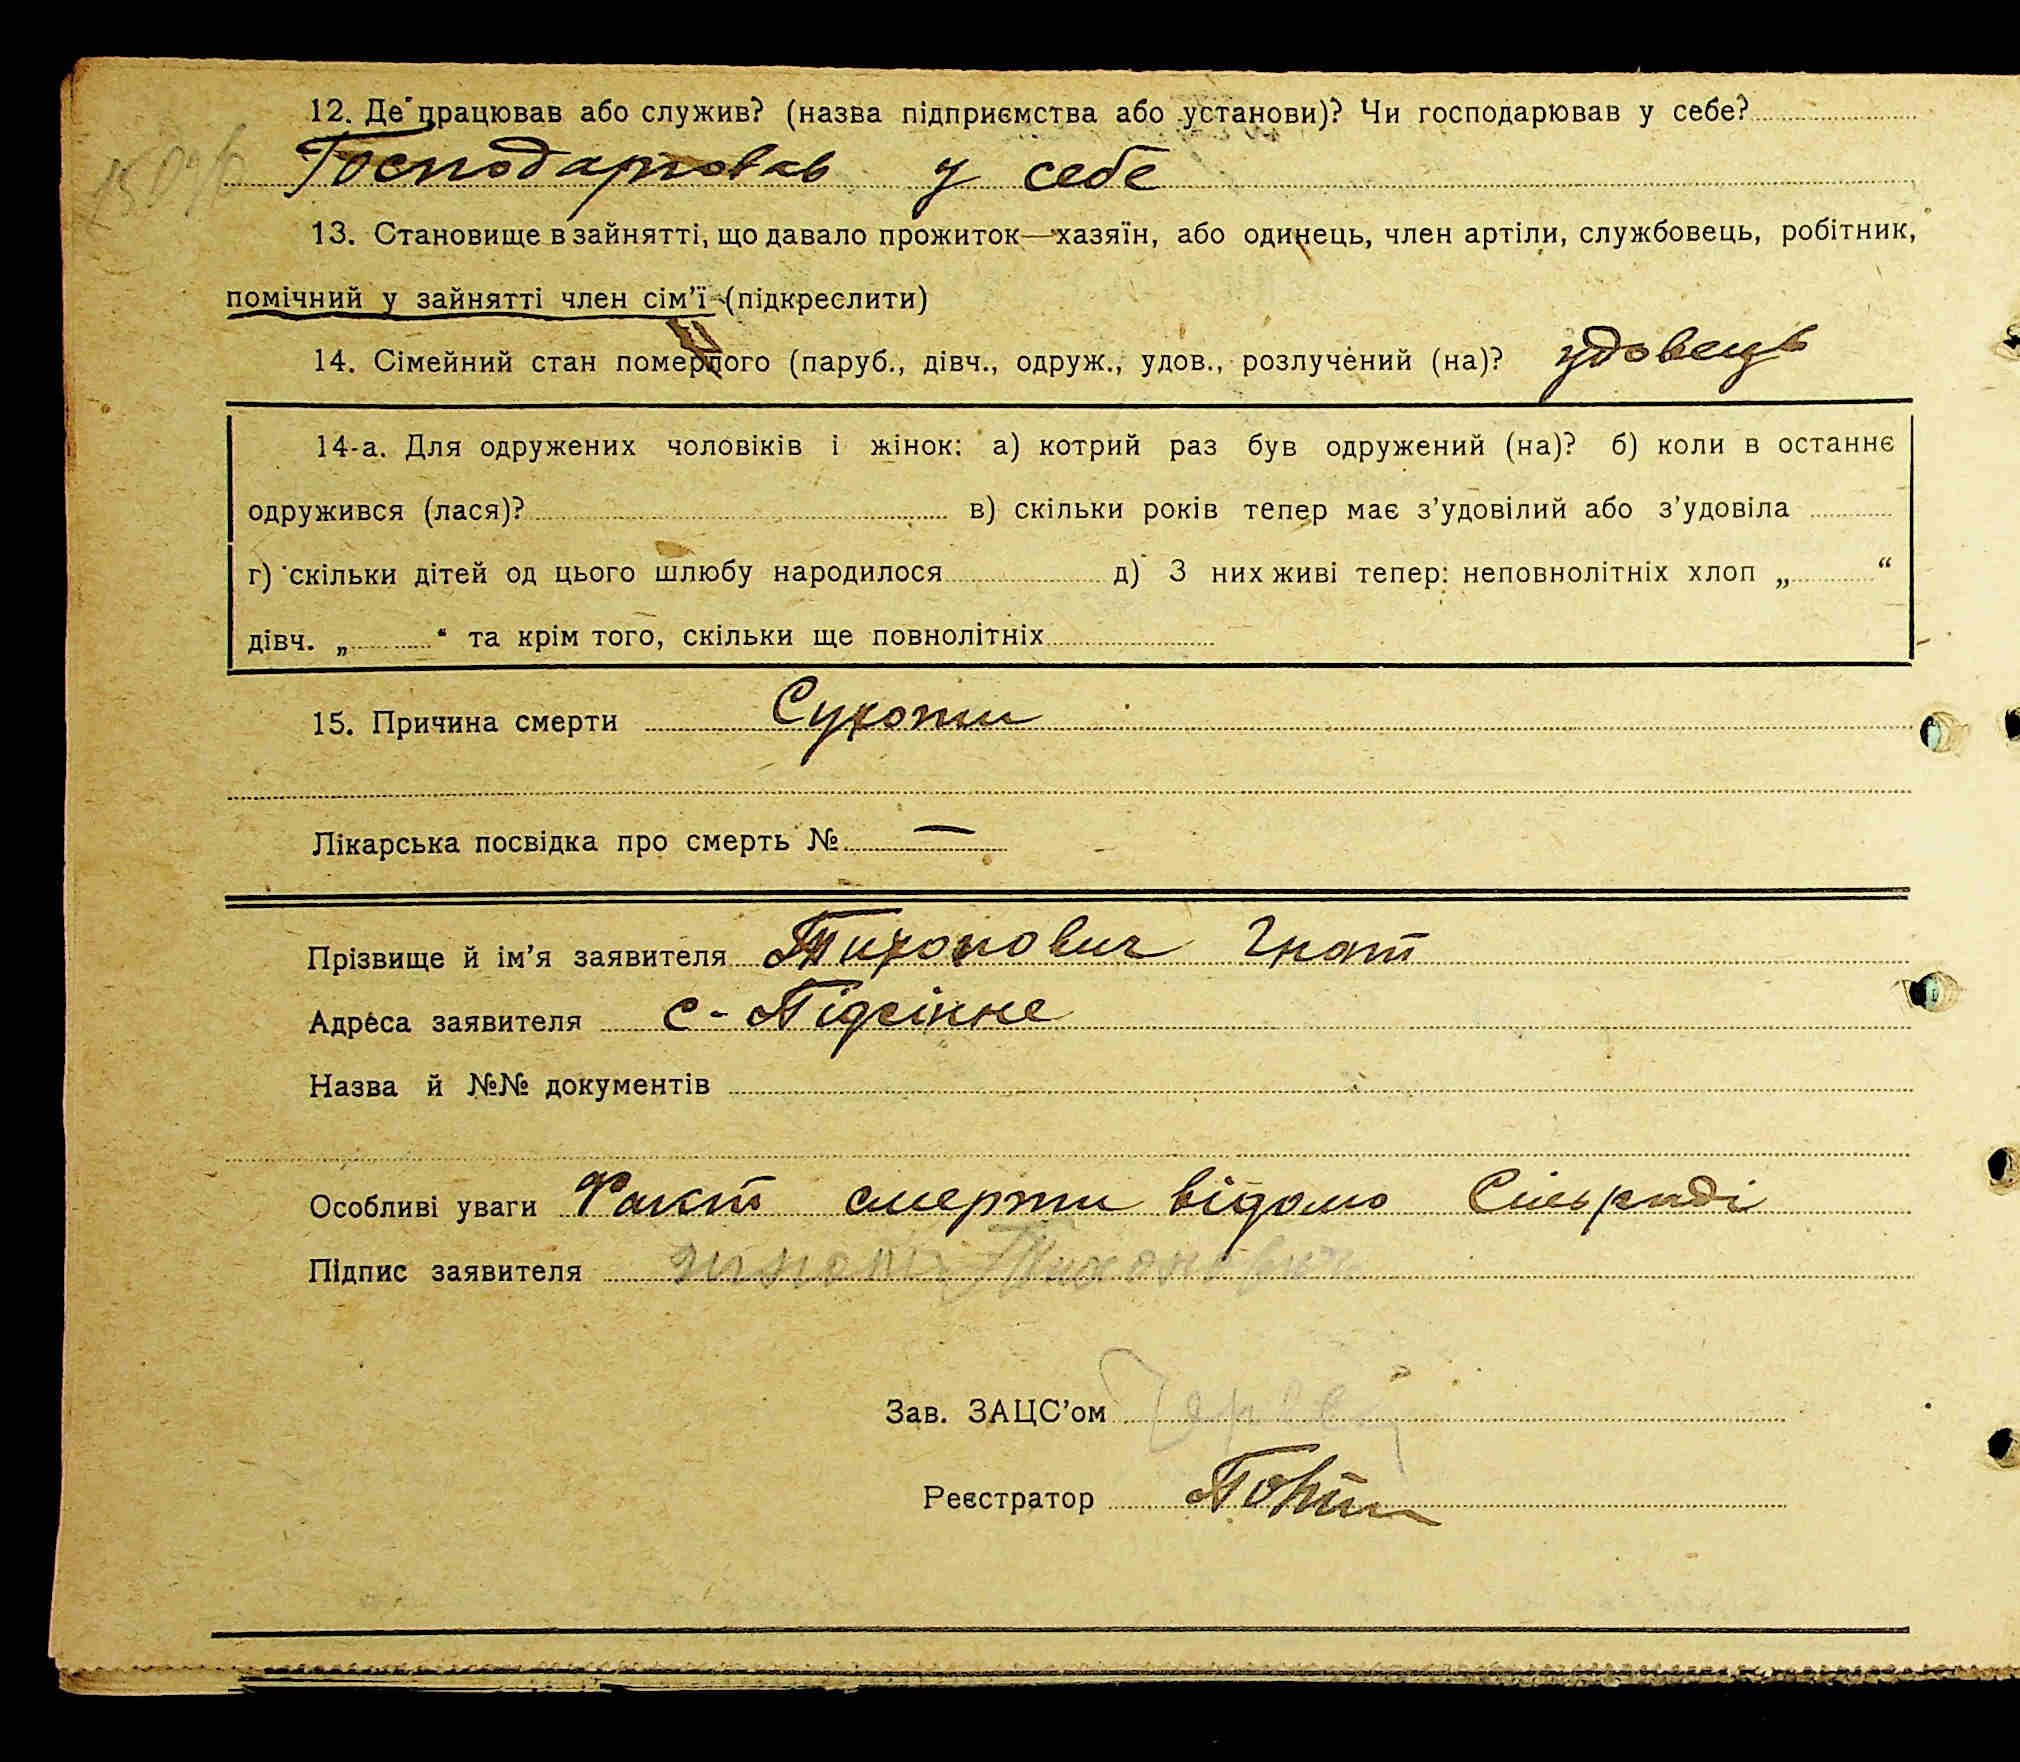 12. Де працював або служив? (назва підприємства або установи)? Чи господарював у себе?
Господарював у себе
13. Становище в зайнятті, що давало прожиток—хазяїн, або одинець, член артіли, службовець, робітник,
помічний у зайнятті член сім'ї (підкреслити)
14. Сімейний стан померлого (паруб., дівч., одруж., удов., розлучений (на)? удовець
14-а. Для одружених чоловіків і жінок: а) котрий раз був одружений (на)? б) коли в останнє
одружився (лася)? в) скільки років тепер має з'удовілий або з'удовіла
г) скільки дітей од цього шлюбу народилося д) З них живі тепер: неповнолітніх хлоп „ “
дівч. „ “ та крім того, скільки ще повнолітніх
15. Причина смерти Сухоти
Лікарська посвідка про смерть № —
Прізвище й ім'я заявителя Тихонович Гнат
Адреса заявителя с - Підсінне
Назва й №№ документів
Особливі уваги Факт смерти відомо Сільраді
Підпис заявителя Тихонович
Зав. ЗАЦС'ом
Реєстратор